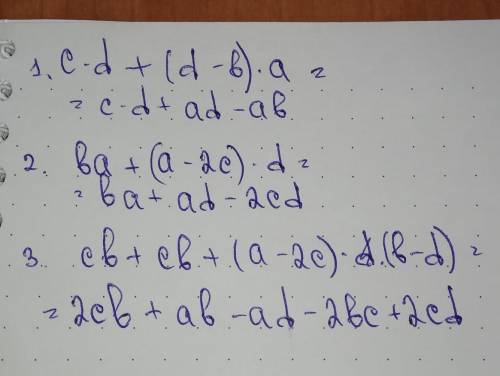 1. c·d + (d - b)·a =
= c·d + ad - ab
2. ba + (a - 2c)·d =
= ba + ad - 2cd
3. cb + cb + (a - 2c)·(b - d) =
= 2cb + ab - ad - 2bc + 2cd